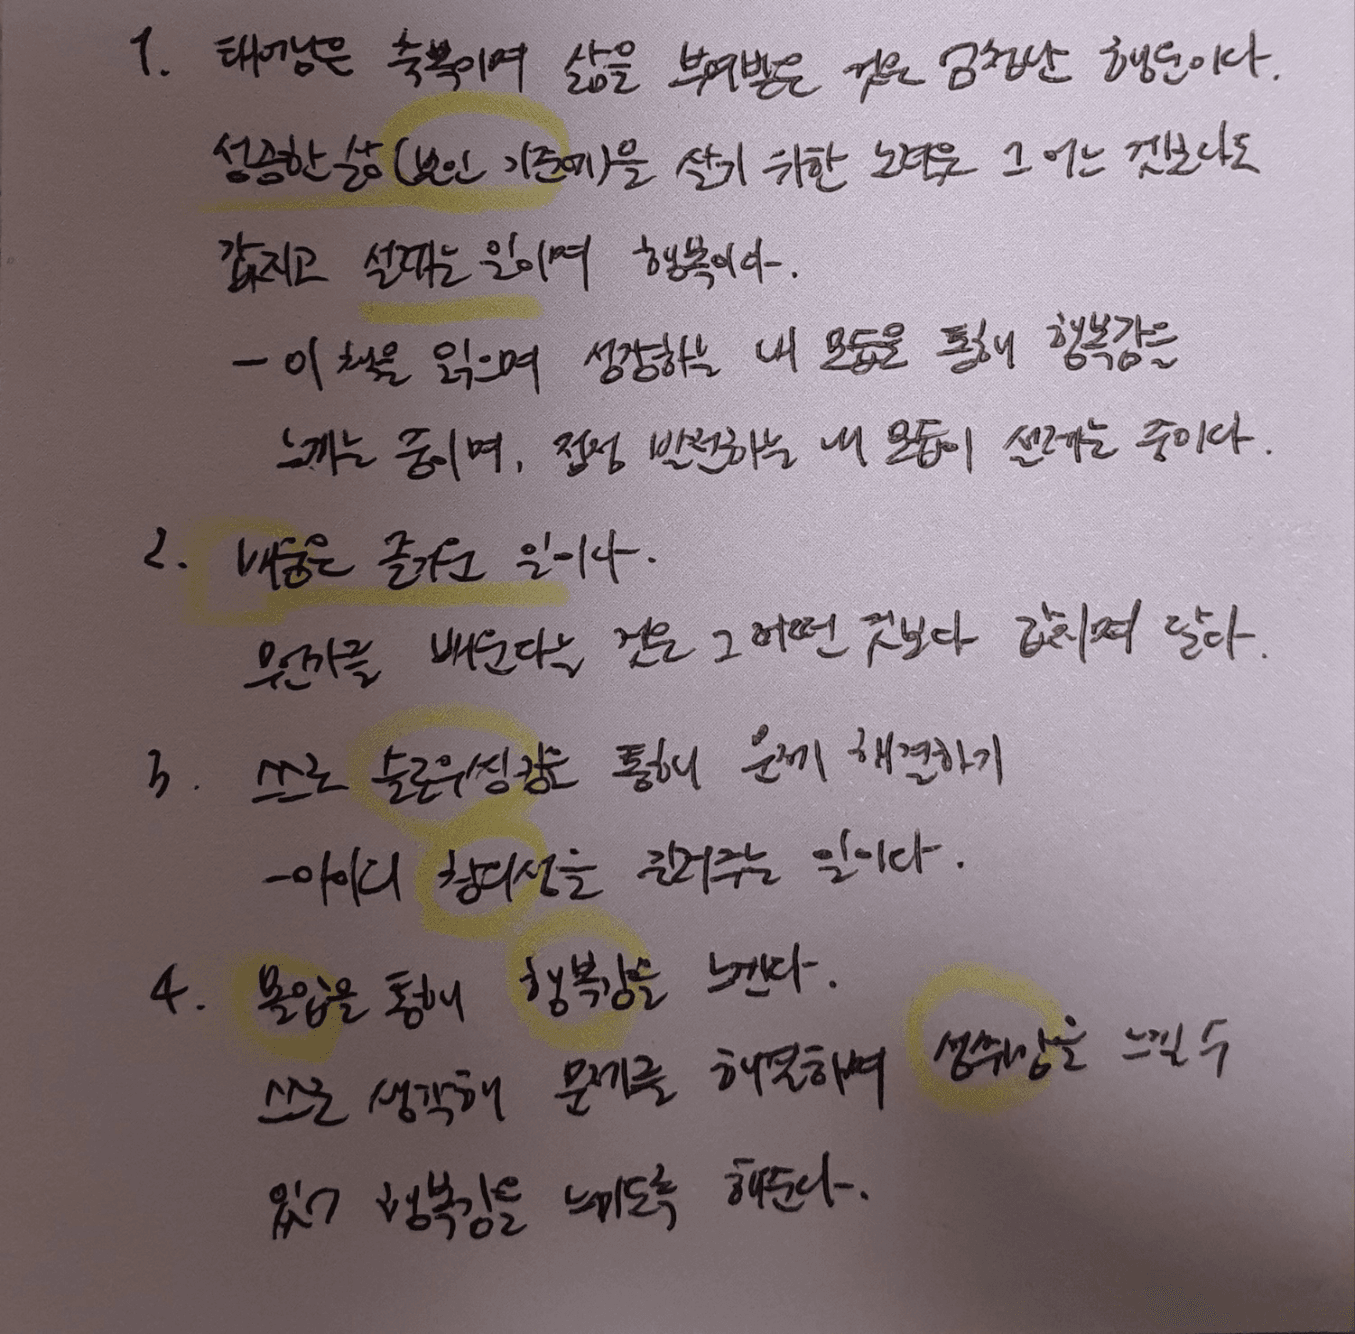 1. 태어남은 축복이며 삶을 부여받은 것은 엄청난 행운이다.
성공한 삶(본인 기준에)을 살기 위한 노력은 그 어느 것보다도
값지고 설레는 일이며 행복이다.
- 이 책을 읽으며 성장하는 내 모습을 통해 행복감을
느끼는 중이며, 점점 발전하는 내 모습이 설레는 중이다.
2. 배움은 즐거운 일이다.
무언가를 배운다는 것은 그 어떤 것보다 값지며 달다.
3. 스스로 슬로우싱킹을 통해 문제 해결하기
- 아이디 창의성을 길러주는 일이다.
4. 몰입을 통해 행복감을 느낀다.
스스로 생각해 문제를 해결하며 성취감을 느낄 수
있고 행복감을 느끼도록 해준다.